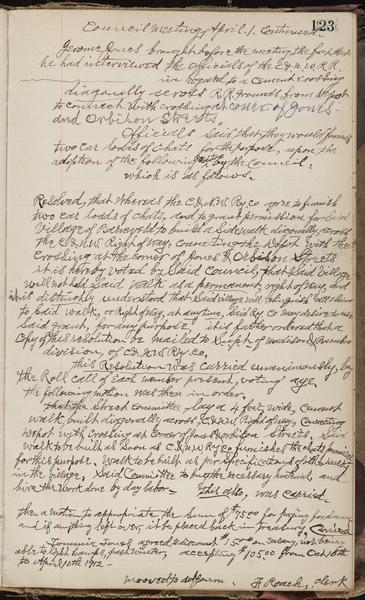 123
Council Meeting April 1. Continued
Jerome Jones brought before the meeting the fact that
he had interviewed the officials of the C & N.W. R.R.
in regard to a cement crossing
diagonally across R.R grounds from Depot
to connect with crossing at corner of Jones
and Orbison Streets.
Officials said that they would furnish
two car loads of chats for the purpose, upon the
adoption of the following by the Council.
which is as follows.
Resolved, that whereas the C & N.W. Ry Co agree to furnish
two car loads of chats, and to grant permission for said
Village of to build a sidewalk diagonally across
the C & N.W. Right of Way, connecting the Depot with the
crossing at the corner of Jones & Orbison Streets
it is hereby voted by said Council, that said Village
will not hold said walk as a permanent right of way, and
it is distinctly understood that said village will relinquish all claim
to said walk, or Right of Way, at any time, said Ry Co may desire to use
said grant, for any purpose, it is further ordered that a
copy of this resolution be mailed to Supt. of Madison &
division of C & N.W Ry Co,
this Resolution was carried unanimously by
the Roll call of each member present, voting aye.
the following motion was then in order.
that the Street Committee lay a 4 feet, wide, cement
walk, built diagonally across C & N.W. Right of Way, connecting
Depot with crossing at corner of Jones & Orbison Streets. Said
walk to be built as soon as C & N.W Ry Co furnishes the chats promised
for this purpose. Walk to be built as per specifications of other
in the village, said Committee to buy the necessary material, and
hire the work done by day labor - This also, was carried
then a motion to appropriate the sum of $75.00 for paying for same
and is anything left over, it be placed back in treasury, Carried
Jones agreed to discount $15.00 on salary, not being
able to light lamps, past winter, accepting $105.00 from Oct 10th
to April 10th 1912 -
mooved to adjourn. F. Roach, clerk